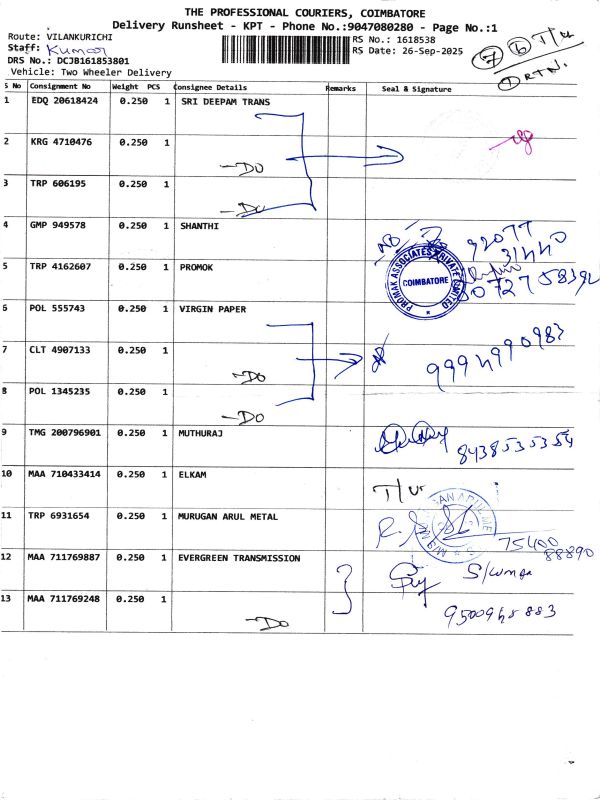 THE PROFESSIONAL COURIERS, COIMBATORE
Delivery Runsheet - KPT - Phone No.:9047080280 - Page No.:1
Route: VILANKURICHI
RS No.: 1618538
Staff: Kumar
RS Date: 26-Sep-2025
DRS No.: DCJB161853801
Vehicle: Two Wheeler Delivery
7 6 T/U
1 RTN.
S No Consignment No Weight PCS Consignee Details Remarks Seal & Signature
1 EDQ 20618424 0.250 1 SRI DEEPAM TRANS
2 KRG 4710476 0.250 1
-Do
3 TRP 606195 0.250 1
-Do
4 GMP 949578 0.250 1 SHANTHI
5 TRP 4162607 0.250 1 PROMOK
PROMAK ASSOCIATES PRIVATE LIMITED
COIMBATORE
6 POL 555743 0.250 1 VIRGIN PAPER
7 CLT 4907133 0.250 1
-Do
9994990983
8 POL 1345235 0.250 1
-Do
9 TMG 200796901 0.250 1 MUTHURAJ
8438535354
10 MAA 710433414 0.250 1 ELKAM
T/U
11 TRP 6931654 0.250 1 MURUGAN ARUL METAL
75400
88890
12 MAA 711769887 0.250 1 EVERGREEN TRANSMISSION
13 MAA 711769248 0.250 1
-Do